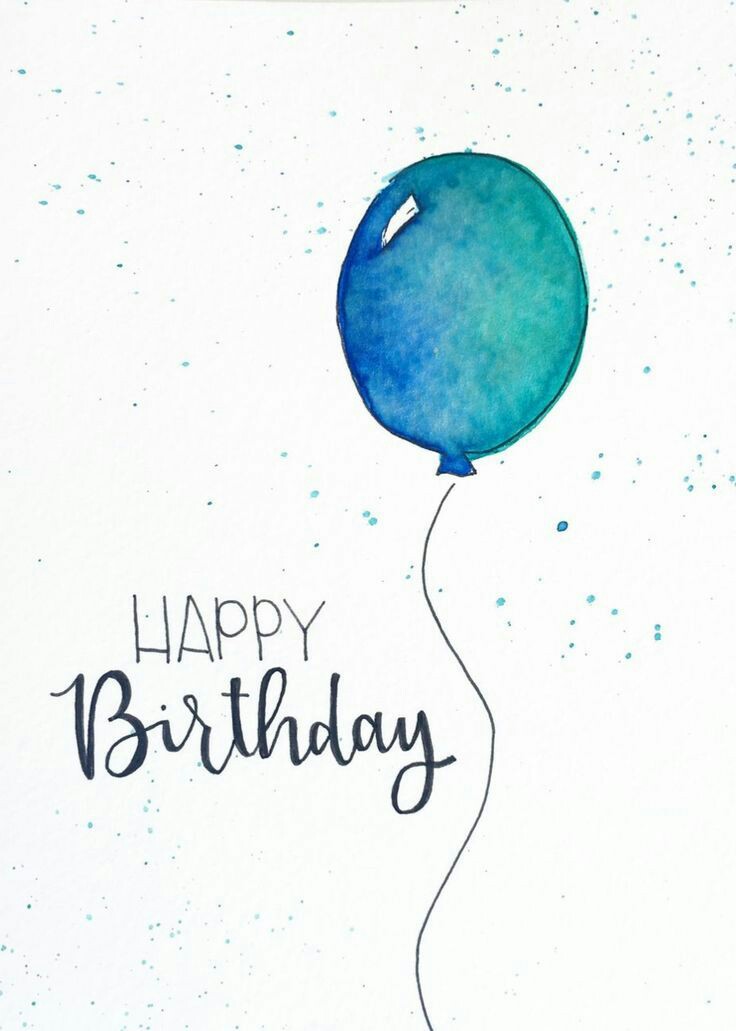 HAPPY
Birthday